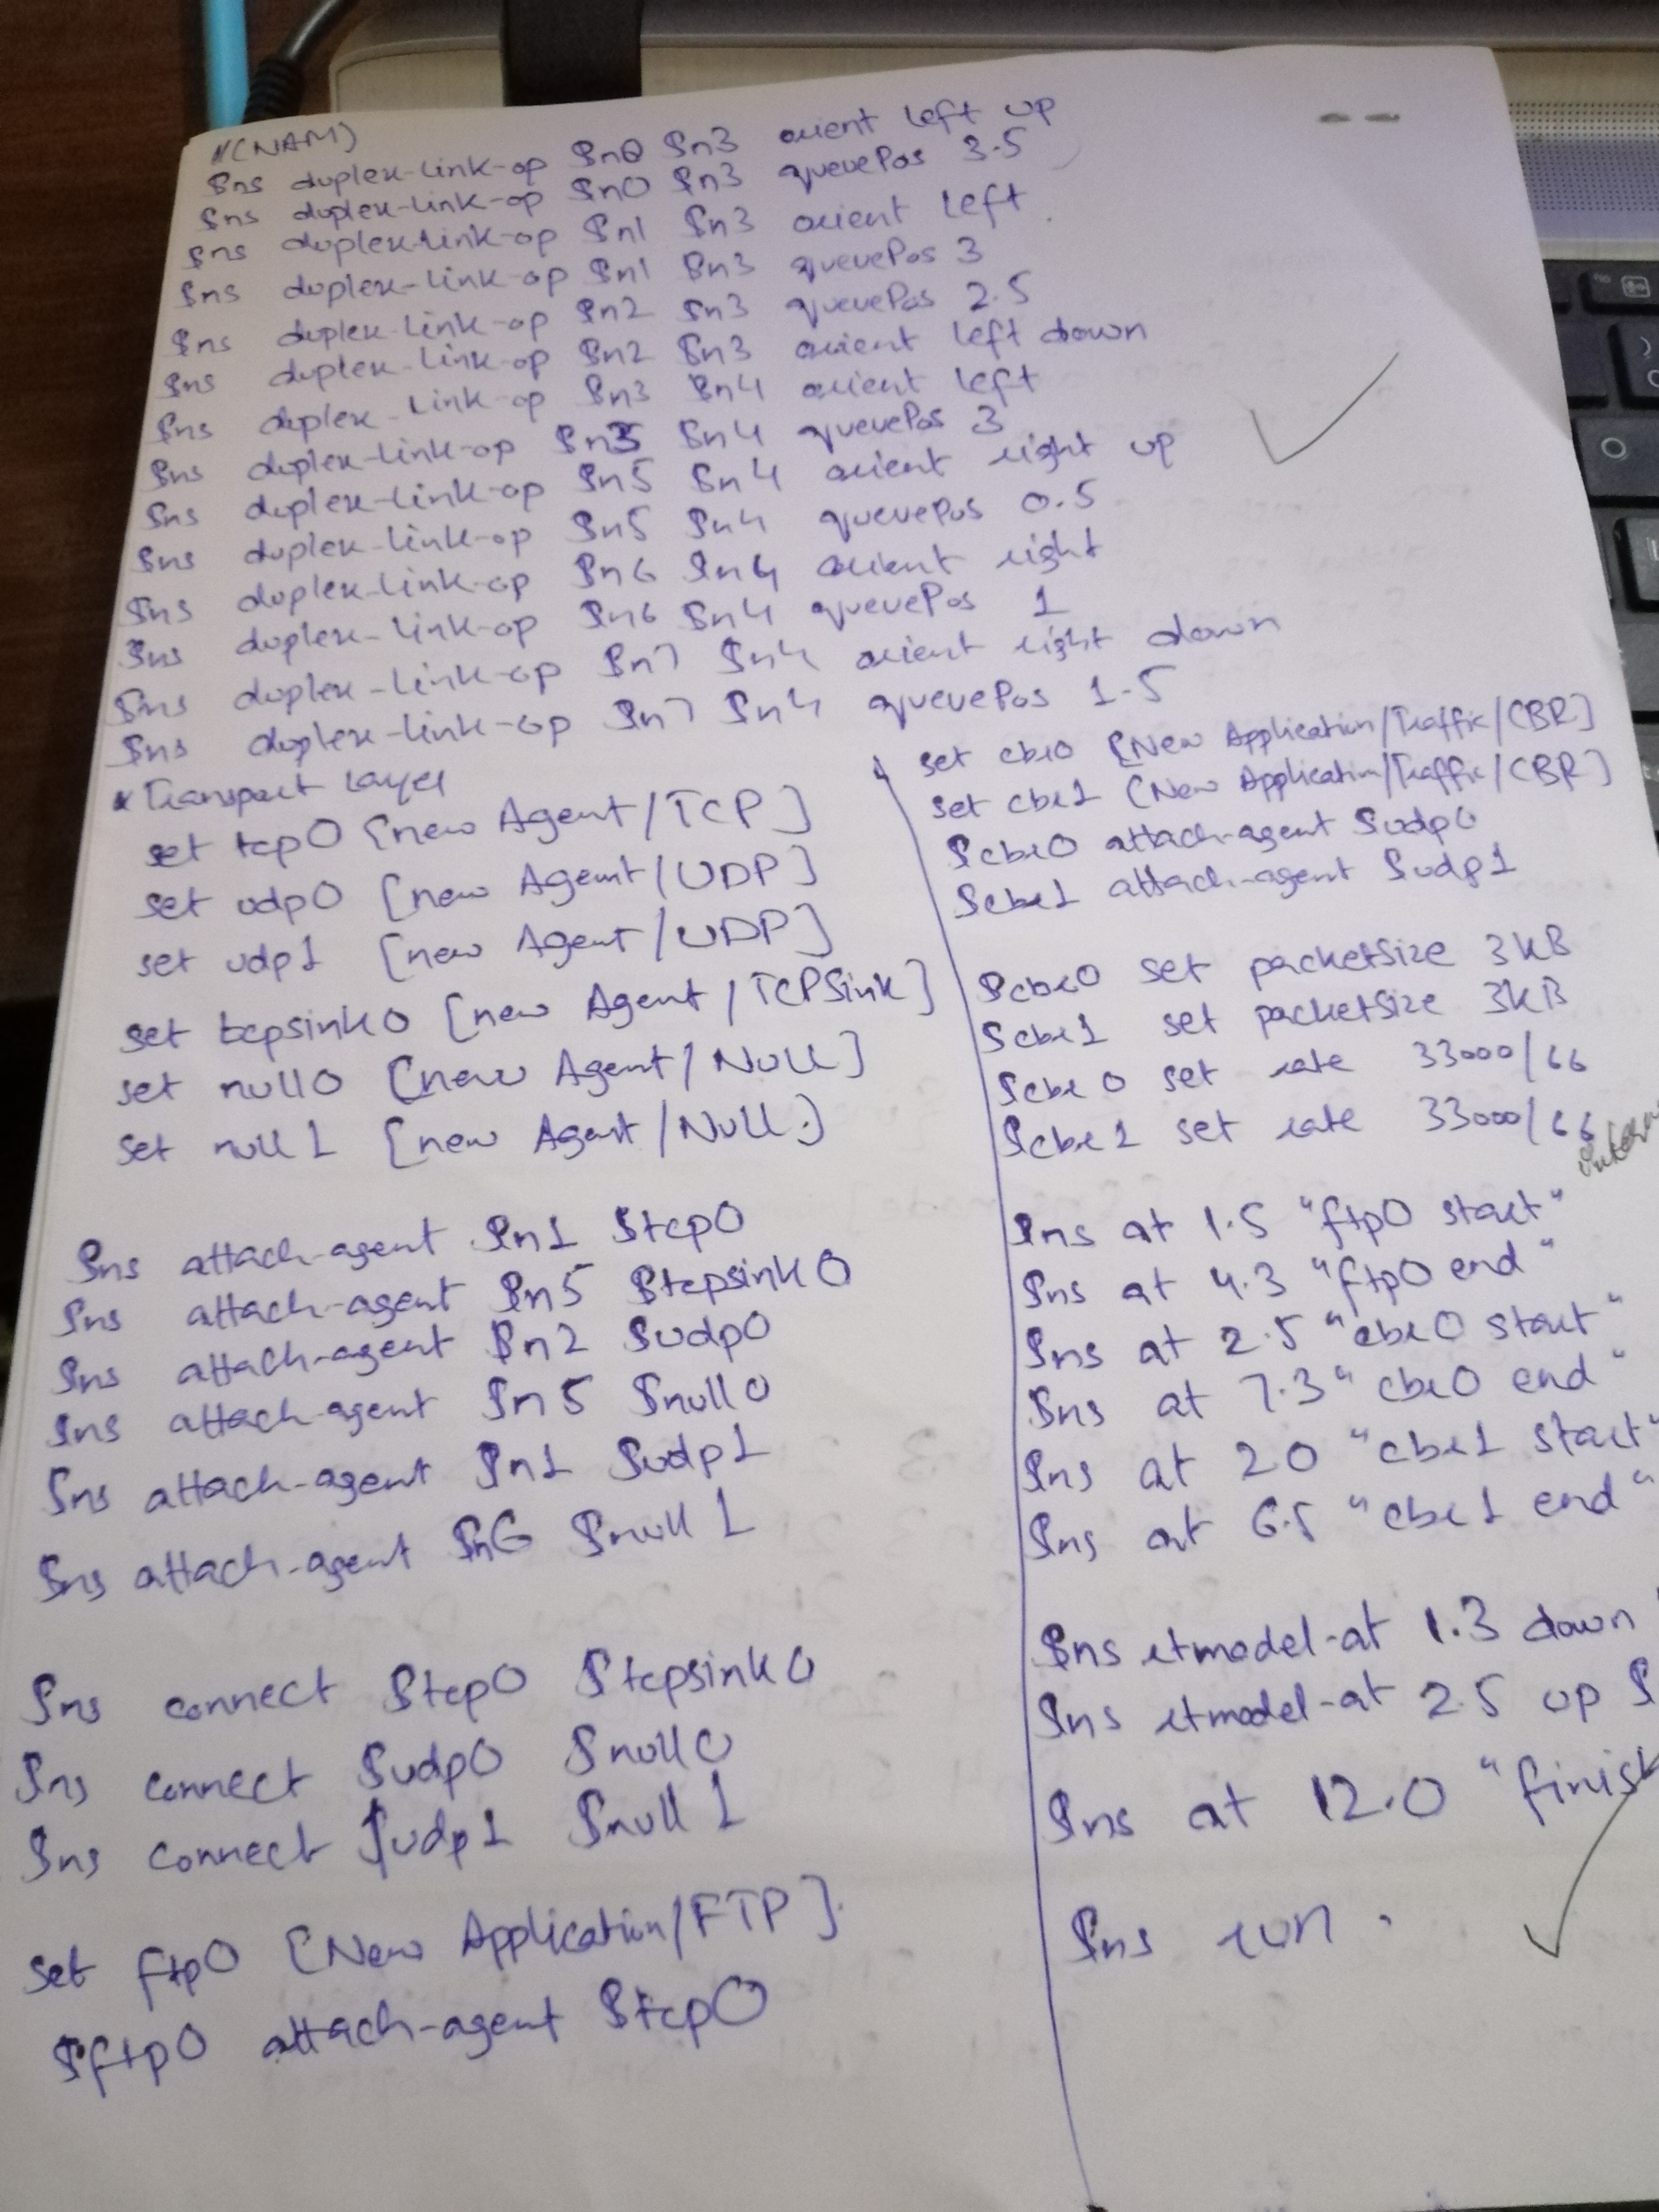 (NAM)
$ns duplex-link-op $n0 $n3 orient left up
$ns duplex-link-op $n0 $n3 queuePos 3.5
$ns duplex-link-op $n1 $n3 orient left
$ns duplex-link-op $n1 $n3 queuePos 3
$ns duplex-link-op $n2 $n3 queuePos 2.5
$ns duplex-link-op $n2 $n3 orient left down
$ns duplex-link-op $n3 $n4 orient left
$ns duplex-link-op $n3 $n4 queuePos 3
$ns duplex-link-op $n5 $n4 orient right up
$ns duplex-link-op $n5 $n4 queuePos 0.5
$ns duplex-link-op $n6 $n4 orient right
$ns duplex-link-op $n6 $n4 queuePos 1
$ns duplex-link-op $n7 $n4 orient right down
$ns duplex-link-op $n7 $n4 queuePos 1.5
* Transport Layer
set tcp0 [new Agent/TCP]
set udp0 [new Agent/UDP]
set udp1 [new Agent/UDP]
set tcpsink0 [new Agent/TCPSink]
set null0 [new Agent/Null]
set null1 [new Agent/Null]
$ns attach-agent $n1 $tcp0
$ns attach-agent $n5 $tcpsink0
$ns attach-agent $n2 $udp0
$ns attach-agent $n5 $null0
$ns attach-agent $n1 $udp1
$ns attach-agent $n6 $null1
$ns connect $tcp0 $tcpsink0
$ns connect $udp0 $null0
$ns connect $udp1 $null1
set ftp0 [New Application/FTP]
$ftp0 attach-agent $tcp0
set cbr0 [New Application/Traffic/CBR]
set cbr1 [New Application/Traffic/CBR]
$cbr0 attach-agent $udp0
$cbr1 attach-agent $udp1
$cbr0 set packetSize 3kB
$cbr1 set packetSize 3kB
$cbr0 set rate 33000/66
$cbr1 set rate 33000/66
$ns at 1.5 "ftp0 start"
$ns at 4.3 "ftp0 end"
$ns at 2.5 "cbr0 start"
$ns at 7.3 "cbr0 end"
$ns at 20 "cbr1 start"
$ns at 6.5 "cbr1 end"
$ns rtmodel-at 1.3 down
$ns rtmodel-at 2.5 up $
$ns at 12.0 "finish
$ns run.